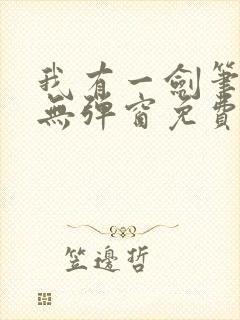 我有一劍筆
無彈窗免費
笠邊哲